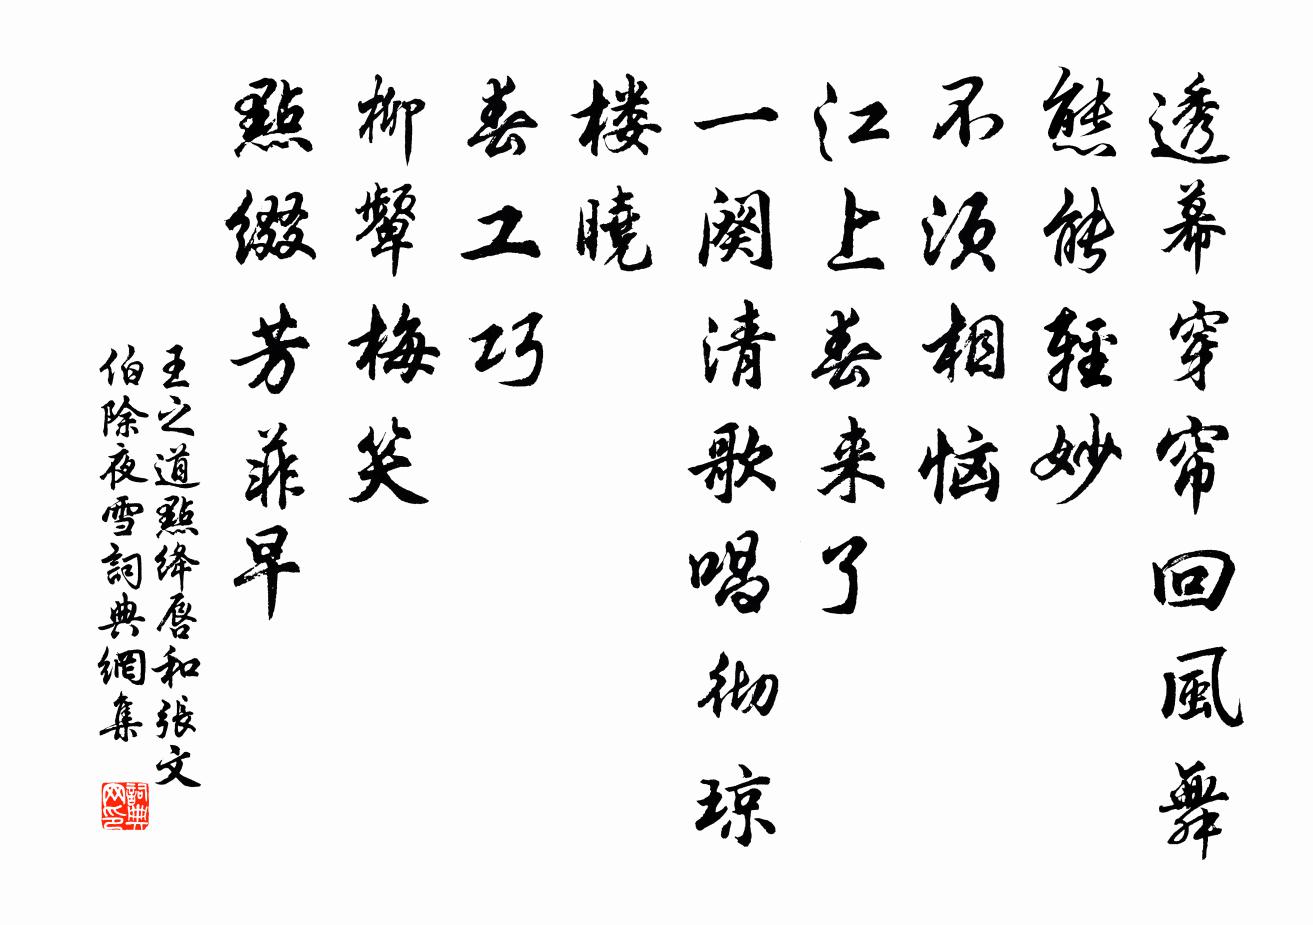 透幕穿帘回風舞
態能輕妙
不須相恼
江上春来了
一阕清歌唱彻琼
楼曉
春工巧
柳顰梅笑
點缀芳菲早
王之道點绛唇和張文
伯除夜雪詞典網集
詞典
网印